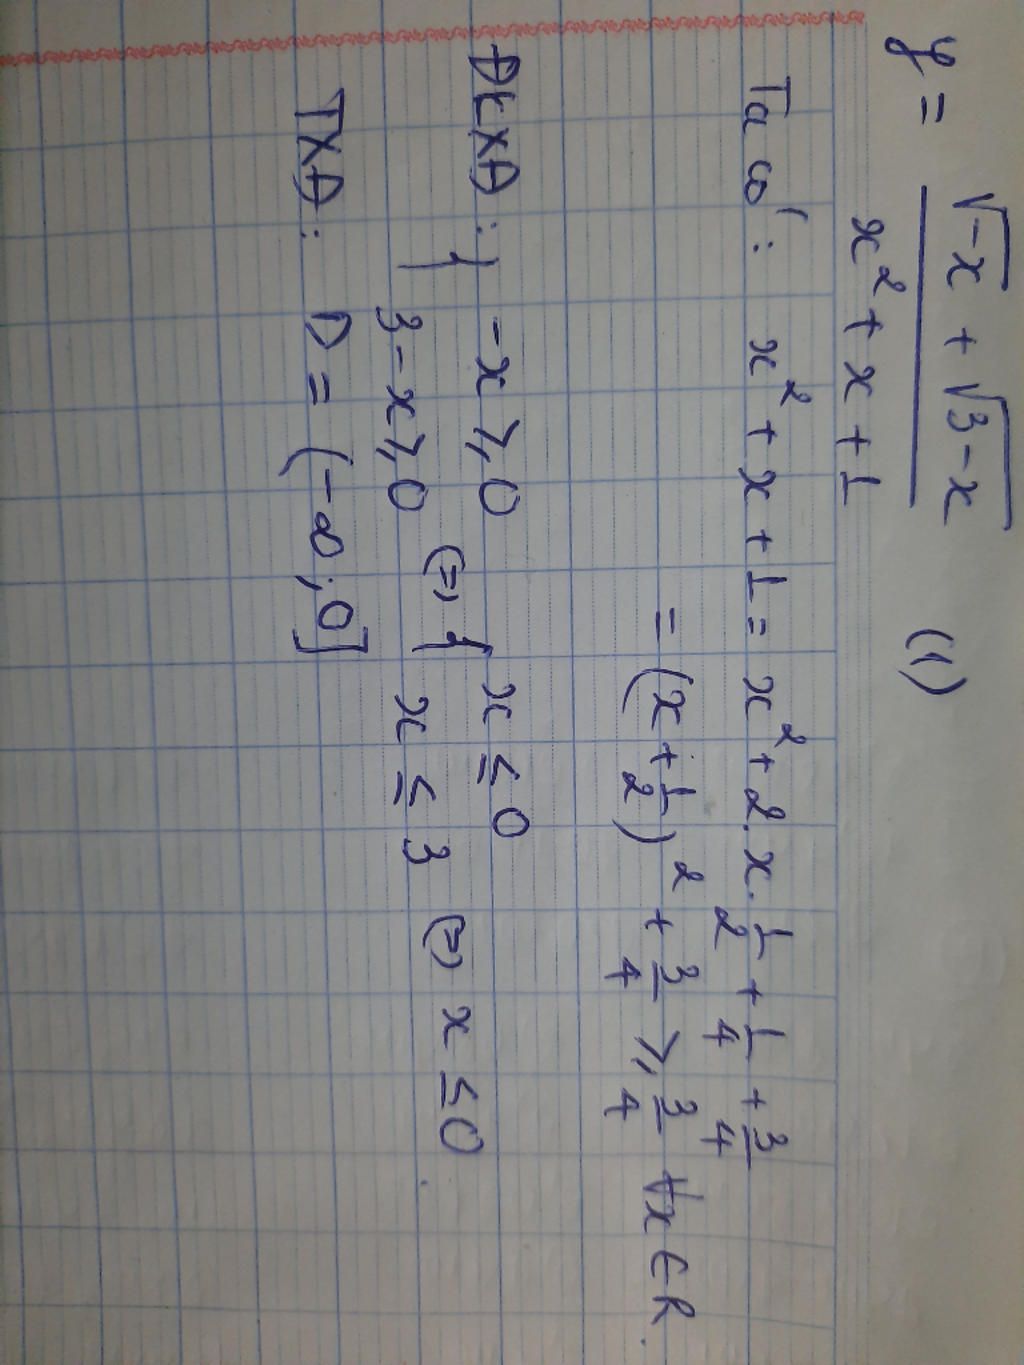 y = (√-x + √3-x) / (x² + x + 1) (1)
Ta có: x² + x + 1 = x² + 2.x.1/2 + 1/4 + 3/4
= (x + 1/2)² + 3/4 ⩾ 3/4 ∀x ∈ R.
ĐKXĐ: { -x ⩾ 0 ; 3-x ⩾ 0 (=) { x ≤ 0 ; x ≤ 3 (=) x ≤ 0.
TXĐ: D = (-∞; 0]